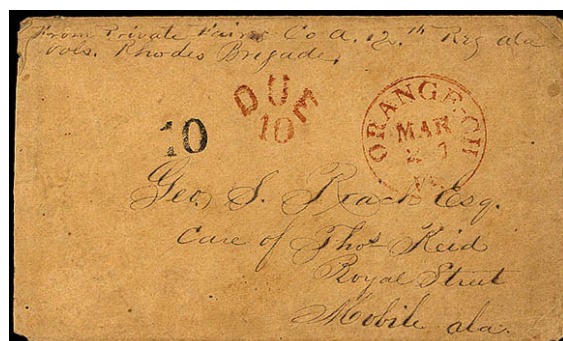 From Private Fairs Co A. 12.th Reg ala
vols. Rhodes Brigade,
DUE
10
10
ORANGE C.H.
MAR
Geo. S. Esq.
Care of Thos Reid
Royal Street
Mobile ala.